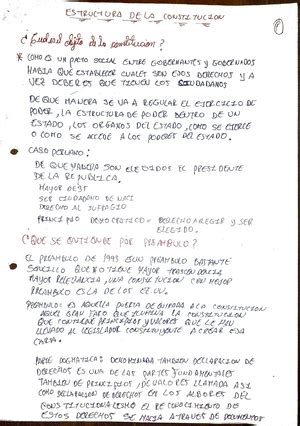 ESTRUCTURA DE LA CONSTITUCION
①
¿Cual es el objeto de la constitucion?
* COMO ES UN PACTO SOCIAL ENTRE GOBERNANTES Y GOBERNADOS
HABIA QUE ESTABLECER CUALES SON ESOS DERECHOS Y A
VEZ DEBERES QUE TIENEN LOS CIUDADANOS
DE QUE MANERA SE VA A REGULAR EL EJERCICIO DE
PODER, LA ESTRUCTURA DE PODER DENTRO DE UN
ESTADO, LOS ORGANOS DEL ESTADO, COMO SE EJERCE
O COMO SE ACCEDE A LOS PODERES DEL ESTADO.
CASO PERUANO:
DE QUE MANERA SON ELEGIDOS EL PRESIDENTE
DE LA REPUBLICA.
MAYOR DE 35
SER CIUDADANO DE NACI
DERECHO AL SUFRAGIO
PRINCIPIO DEMOCRATICO = DERECHO A ELEGIR Y SER
ELEGIDO.
¿QUE SE ENTIENDE POR PREAMBULO?
EL PREAMBULO DE 1993 ES UN PREAMBULO BASTANTE
SENCILLO QUE NO TIENE MAYOR
MAYOR RELEVANCIA, UNA CONSTITUCION CON MEJOR
PREAMBULO ES LA DE LOS EE.UU.
PREAMBULO: ES AQUELLA PUERTA DE ENTRADA A LA CONSTITUCION
AQUEL GRAN FARO QUE ILUMINA LA CONSTITUCION
QUE CONTIENE PRINCIPIOS Y VALORES QUE LE HAN
LLEVADO AL LEGISLADOR CONSTITUYENTE A CREAR ESA
CARTA.
PARTE DOGMATICA: DENOMINADA TAMBIEN DECLARACION DE
DERECHOS ES UNA DE LAS PARTES FUNDAMENTALES
TAMBIEN DE PRINCIPIOS, DE VALORES LLAMADA ASI
COMO DECLARACION DE DERECHOS EN LOS ALBORES DEL
CONSTITUCIONALISMO EL RECONOCIMIENTO DE
ESTOS DERECHOS SE HACIA A TRAVES DE DOCUMENTOS